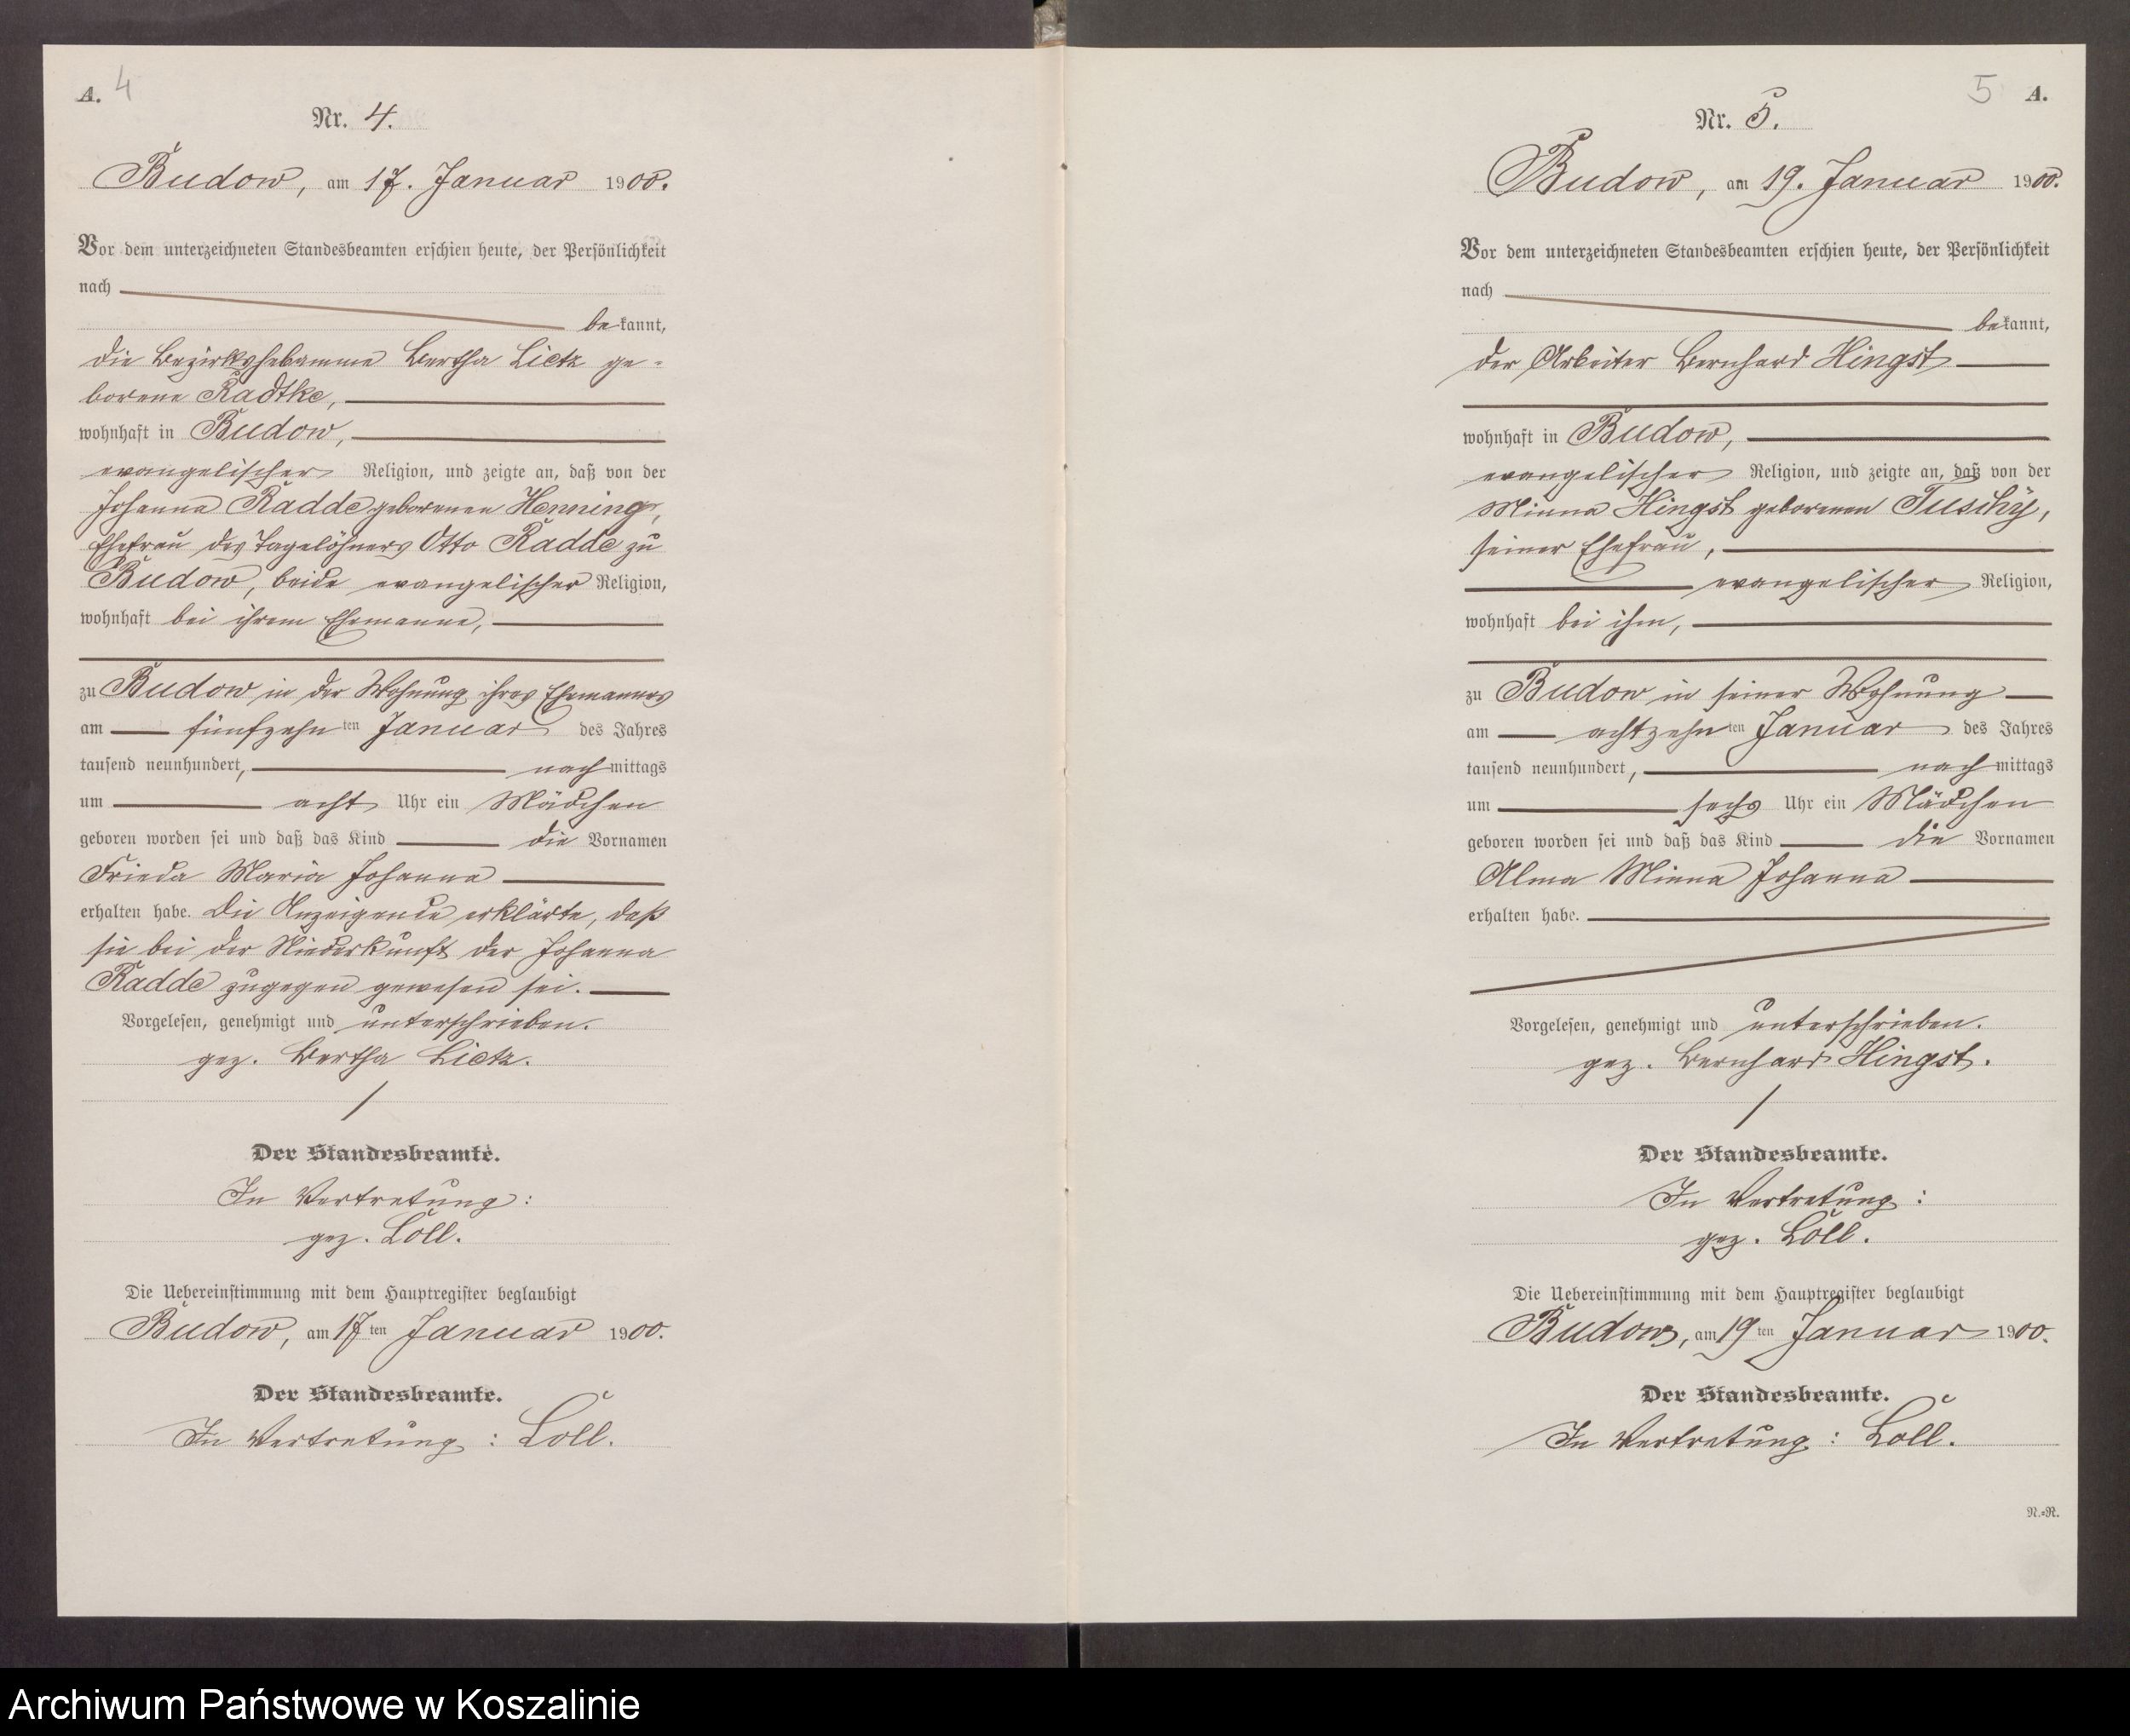 A. 4
Nr. 4.
Budow, am 17. Januar 1900.
Vor dem unterzeichneten Standesbeamten erschien heute, der Persönlichkeit
nach
bekannt,
die Bezirkshebamme Bertha Lietz ge-
borene Radtke,
wohnhaft in Budow,
evangelischer Religion, und zeigte an, daß von der
Johanna Radde geborenen Henning,
Ehefrau des Tagelöhners Otto Radde zu
Budow, beide evangelischer Religion,
wohnhaft bei ihrem Ehemanne,
zu Budow in der Wohnung ihres Ehemannes
am fünfzehnten Januar des Jahres
tausend neunhundert, nachmittags
um acht Uhr ein Mädchen
geboren worden sei und daß das Kind die Vornamen
Frieda Maria Johanna
erhalten habe. Die Anzeigende erklärte, daß
sie bei der Niederkunft der Johanna
Radde zugegen gewesen sei.
Vorgelesen, genehmigt und unterschrieben.
gez. Bertha Lietz.
Der Standesbeamte.
In Vertretung:
gez. Loll.
Die Uebereinstimmung mit dem Hauptregister beglaubigt
Budow, am 17ten Januar 1900.
Der Standesbeamte.
In Vertretung: Loll.
5 A.
Nr. 5.
Budow, am 19. Januar 1900.
Vor dem unterzeichneten Standesbeamten erschien heute, der Persönlichkeit
nach
bekannt,
der Arbeiter Bernhard Hingst
wohnhaft in Budow,
evangelischer Religion, und zeigte an, daß von der
Minna Hingst geborenen Tuschy,
seiner Ehefrau,
evangelischer Religion,
wohnhaft bei ihm,
zu Budow in seiner Wohnung
am achtzehnten Januar des Jahres
tausend neunhundert, nachmittags
um sechs Uhr ein Mädchen
geboren worden sei und daß das Kind die Vornamen
Alma Minna Johanna
erhalten habe.
Vorgelesen, genehmigt und unterschrieben.
gez. Bernhard Hingst.
Der Standesbeamte.
In Vertretung:
gez. Loll.
Die Uebereinstimmung mit dem Hauptregister beglaubigt
Budow, am 19ten Januar 1900.
Der Standesbeamte.
In Vertretung: Loll.
N.=R.
Archiwum Państwowe w Koszalinie